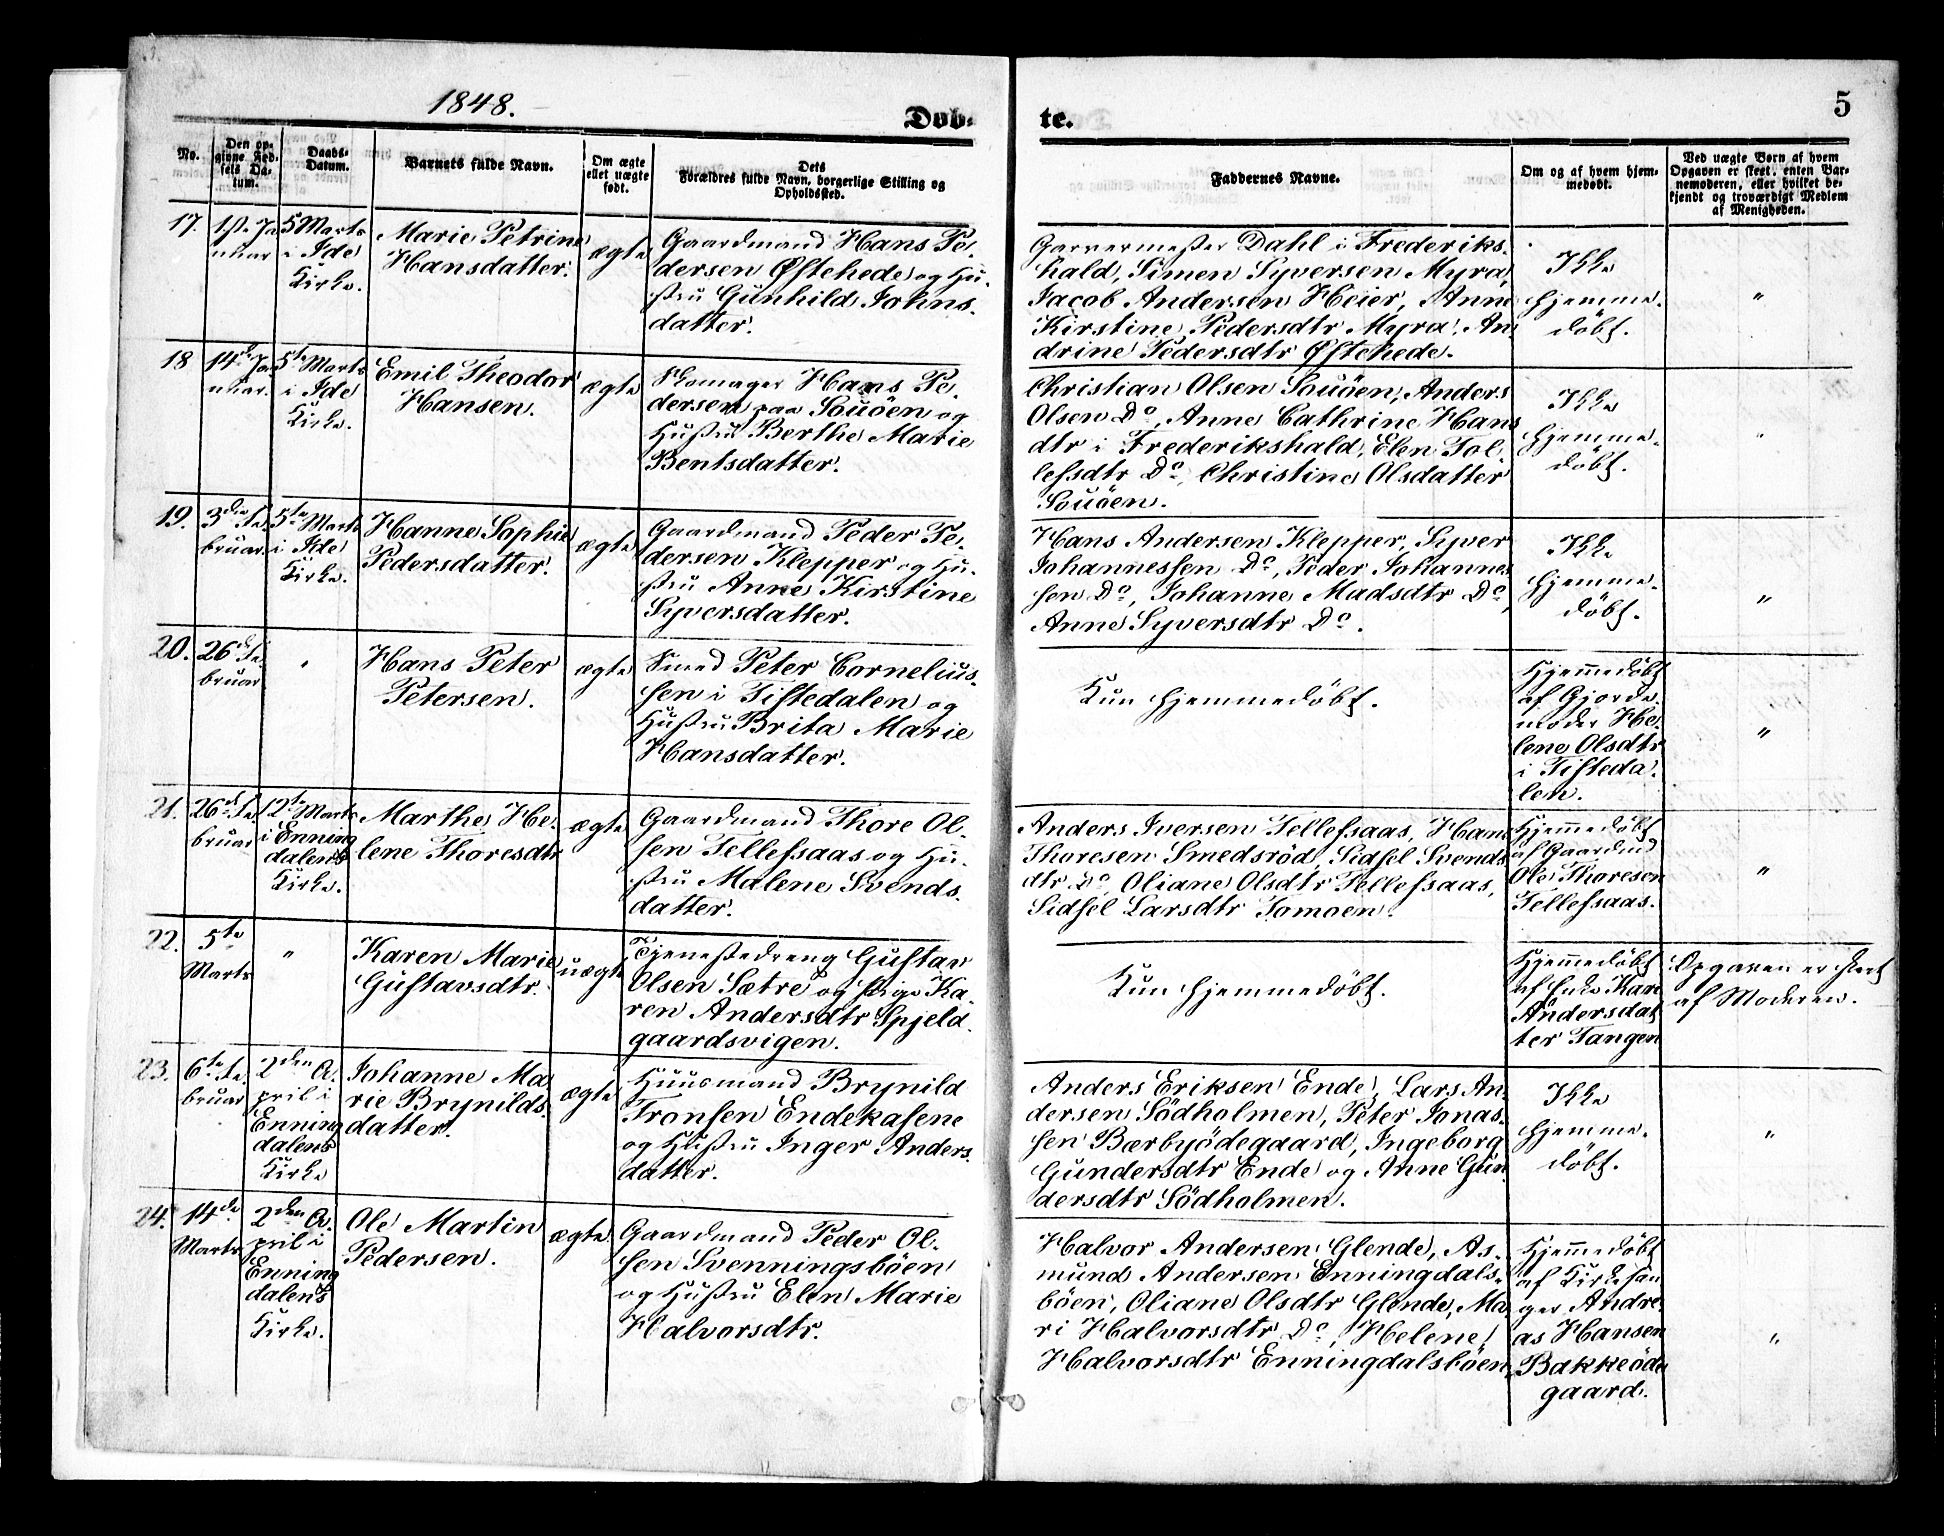 1848.
Døb-
te.
5
No.
Den op-
givne Fød-
sels Da-
tum.
Daabs-
Datum.
Barnets fulde Navn.
Om ægte
ellet uægte
født.
Dets
Forældres fulde Navn, borgerlige Stilling og
Opholdssted.
Faddernes Navne.
Om og af hvem hjem-
medøbt.
Ved uægte Børn af hvem
Opgaven er skeet, enten Bar-
nemoderen, eller hvilket be-
kjendt og troværdigt Medlem
af Menigheden.
17.
1st. Ja
nuar
5 Marts
i Idde
Kirke.
Marie Petrine
Hansdatter.
ægte
Gaardmand Hans Pe-
dersen Østehede og Hu-
stru Gunhild Johns-
datter.
Garvermester Dahl i Frederiks-
hald, Simen Syversen Myra,
Jacob Andersen Heier, Anne
Kirstine Pedersdtr Myra, An-
drine Pedersdtr Østehede.
Ikke
hjemme-
døbt.
"
18
14de Ja
nuar.
5te Marts
i Idde
Kirke.
Emil Theodor
Hansen.
ægte
Skomager Hans Pe-
dersen paa Souöen og
Hustru Berthe Marie
Bentsdatter.
Christian Olsen Souöen, Anders
Olsen Do, Anne Cathrine Hans
dtr i Frederikshald, Elen Tol-
lefsdtr Do, Christine Olsdatter
Souöen.
Ikke
hjemme-
døbt.
"
19.
3die Fe-
bruar.
5te Marts
i Idde
Kirke.
Hanne Sophie
Pedersdatter.
ægte
Gaardmand Peder Pe-
dersen Klepper og Hu-
stru Anne Kirstine
Syversdatter.
Hans Andersen Klepper, Syver
Johannessen Do, Peder Johannes
sen Do, Johanne Madsdtr Do,
Anne Syversdtr Do.
Ikke
hjemme-
døbt.
"
20.
26de Fe-
bruar
"
Hans Peter
Petersen.
ægte
Smed Peter Cornelius-
sen i Tistedalen og
Hustru Brita Marie
Hansdatter.
Kun hjemmedøbt.
Hjemmedøbt
af Gjorde-
moder He-
lene Olsdtr
i Tisteda-
len.
"
21.
26de Fe-
bruar
12te Marts
i Enning
dalens
Kirke.
Marthe He-
lene Thoresdtr
ægte
Gaardmand Thore Ol-
sen Tellefsaas og Hu-
stru Malene Svends-
datter.
Anders Iversen Tellefsaas, Hans
Thoresen Smedsröd, Sidsel Svends
dtr Do, Oliane Olsdtr Tellefsaas,
Sidsel Larsdtr Tomoen.
Hjemmedøbt
af Gaardmd
Ole Thoresen
Tellefsaas.
"
22.
5te
Marts
"
Karen Marie
Gustavsdtr.
uægte
Tjenestedreng Gustav
Olsen Sætre og Pige Ka-
ren Andersdtr Spjeld-
gaardsvigen.
Kun hjemmedøbt.
Hjemmedøbt
af Enke Kari
Andersdat
ter Tangen
Opgaven er skeet
af Moderen.
23.
6te Fe-
bruar
2den A-
pril i
Enning
dalens
Kirke
Johanne Ma-
rie Brynilds-
datter.
ægte
Huusmand Brynild
Tronsen Endekasene
og Hustru Inger Anders-
datter.
Anders Eriksen Ende, Lars An-
dersen Södholmen, Peter Jonas-
sen Bærbyödegaard, Ingeborg
Gundersdtr Ende og Anne Gun-
dersdtr Södholmen.
Ikke
hjemme-
døbt.
"
24.
14de
Marts
2den A-
pril i
Enning
dalens
Kirke.
Ole Martin
Pedersen.
ægte
Gaardmand Peder Ol-
sen Svenningsböen
og Hustru Elen Marie
Halvorsdtr.
Halvor Andersen Glende, As-
mund Andersen Enningdals-
böen, Oliane Olsdtr Glende, Ma-
ri Halvorsdtr Do, Helene
Halvorsdtr Enningdalsböen.
Hjemmedøbt
af Kirkesan
ger Andre-
as Hansen
Bakkeöde
gaard.
"